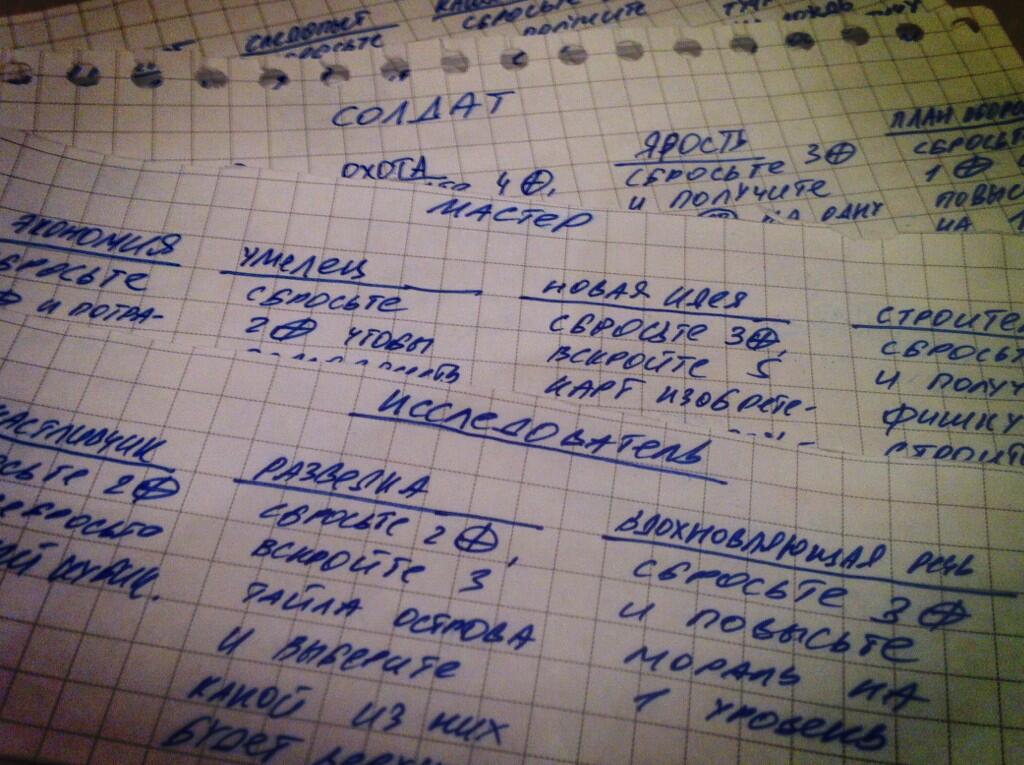 СЛЕДОПЫТ
СБРОСЬТЕ
СОЛДАТ
ОХОТА
4 ⊕,
ЯРОСТЬ
СБРОСЬТЕ 3⊕
И ПОЛУЧИТЕ
НА ОДНУ
ПЛАН
СБРОСЬТЕ
1 ⊕
НА 1
МАСТЕР
ЭКОНОМИЯ
СБРОСЬТЕ
⊕ И ПОТРА-
УМЕЛЕЦ
СБРОСЬТЕ
2⊕ ЧТОБЫ
НОВАЯ ИДЕЯ
СБРОСЬТЕ 3⊕,
ВСКРОЙТЕ 5
КАРТ ИЗОБРЕТЕ-
СТРОИТЕЛ
СБРОСЬТ
И ПОЛУЧ
ФИШКУ
ИССЛЕДОВАТЕЛЬ
АСТЛИВЧИК
ОСЬТЕ 2⊕
ЕБРОСЬТЕ
ИЙ КУБИК.
РАЗВЕДКА
СБРОСЬТЕ 2⊕,
ВСКРОЙТЕ 3
ТАЙЛА ОСТРОВА
И ВЫБЕРИТЕ
КАКОЙ ИЗ НИХ
БУДЕТ
ВДОХНОВЛЯЮЩАЯ РЕЧЬ
СБРОСЬТЕ 3⊕
И ПОВЫСЬТЕ
МОРАЛЬ НА
1 УРОВЕНЬ